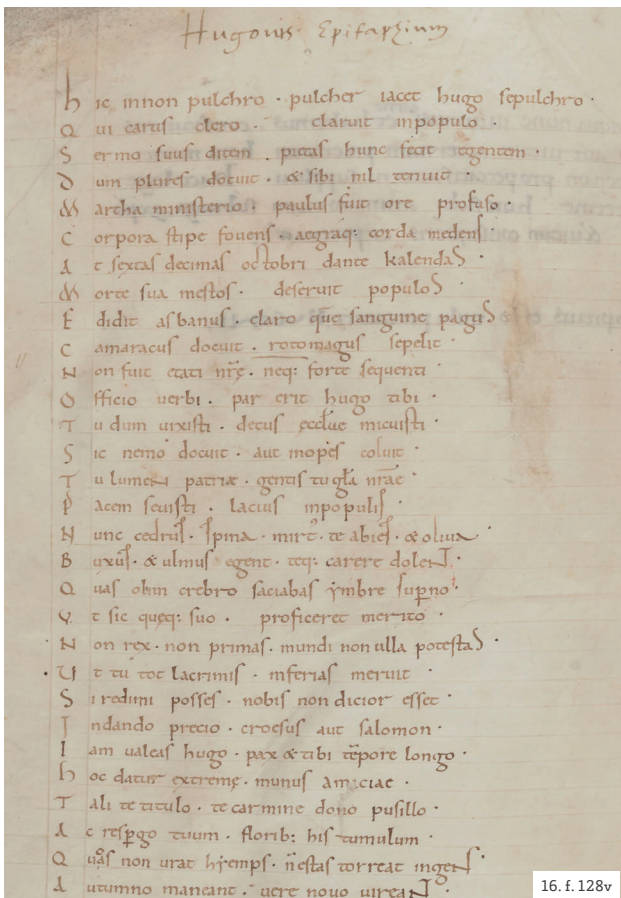 Hugonis Epitaphium
hic innon pulchro · pulcher iacet hugo sepulchro ·
Qui carus clero · claruit inpopulo ·
Sermo suus ditem · pietas hunc fecit egentem ·
Dum plures docuit · & sibi nil tenuit ·
Martha ministerio · paulus fuit ore profuso ·
Corpora stipe fovens · aegraq: corda medens ·
At sextas decimas octobri dante kalendas
Morte sua mestos · deseruit populos
Edidit asbanus · claro que sanguine pagus
Camaracus docuit · rotomagus sepelit ·
Non fuit etati nr̄ę · neq: forte sequenti ·
Officio verbi · par erit hugo tibi ·
Tu dum vixisti · decus eccl̄ię micuisti ·
Sic nemo docuit · aut inopes coluit ·
Tu lumen patriæ · gentis tu gl̄a nr̄ae ·
Pacem sevisti · lacius inpopulis
Nunc cedrus · spina · mirt᾿ · te abies · & oliva
Buxus · & ulmus egent · teq: carere dolent ·
Quas olim crebro saciabas ymbre sup̄no
Vt sic queq: suo · proficeret merito ·
Non rex · non primas · mundi non ulla potestas ·
Ut tu tot lacrimis · inferias meruit ·
Si redimi posses · nobis non dicior esset ·
Indando precio · croesus aut salomon ·
Iam valeas hugo · pax & tibi tēpore longo ·
hoc datur extremę · munus amiciae ·
Tali te titulo · te carmine dono pusillo ·
Ac resp̄go tuum · florib: his tumulum ·
Quos non urat hyemps · n̄ estas torreat ingens ·
Autumno maneant · vere novo vireant ·
16. f. 128v